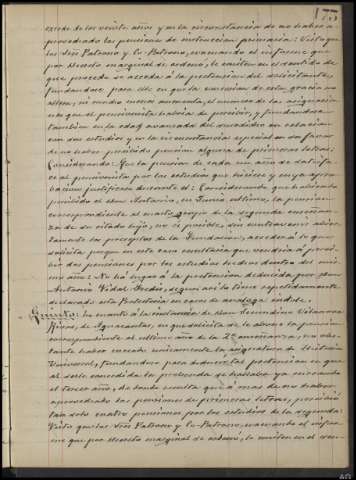 excede de los veinte años y en la circunstancia de no haber a
provechado las pensiones de instrucción primaria: Visto que
los Sres Patrono y Co-Patrono, evacuando el informe que
por decreto marginal se ordenó, le emiten en el sentido de
que procede se acceda á la pretensión del solicitante,
fundandose para ello en que la concesion de esta gracia no
altera, ni mucho menos aumenta, el número de las asignacio
nes que el pensionista habria de percibir, y fundandose
tambien en la edad avanzada del
sus estudios y en la circunstancia especial
de no haber percibido pension alguna de primeras letras;
Considerando: Que la pension de cada un año se satisfa
ce al pensionista por los estudios que hiciese y cuya apro
bacion justificara durante el: Considerando que habiendo
percibido el Don Antonio, en Junio último, la pension
correspondiente al cuarto grupo de la segunda enseñan
za de su citado hijo, no es posible, sin contravenir abier
tamente los preceptos de la Fundacion, acceder á lo que
solicita porque en este caso resultaria que vendria á perci
bir dos pensiones por los estudios hechos dentro del mis
mo año: No há lugar á la pretension deducida por Don
Antonio Vidal segun así lo tiene repetidamente
declarado esta Protectoria en casos de análoga indole.
Quinto: En cuanto á la instancia de Don Secundino Vilanova
Rivas, de Aguacantas, en que solicita se le abone la pension
correspondiente al último año de la 2ª enseñanza, no obs
tante haber cursado unicamente la asignatura de Historia
Universal, fundandose para deducir tal pretension en que
al serle concedida la prebenda se hallaba ya cursando
el tercer año, de donde resulta que á mas de no haber
aprovechado las pensiones de primeras letras, percibió
tan solo cuatro pensiones por los estudios de la segunda:
Visto que los Sres Patrono y Co-Patrono, evacuando el infor
me que por decreto marginal se ordenó, lo emiten en el sen-